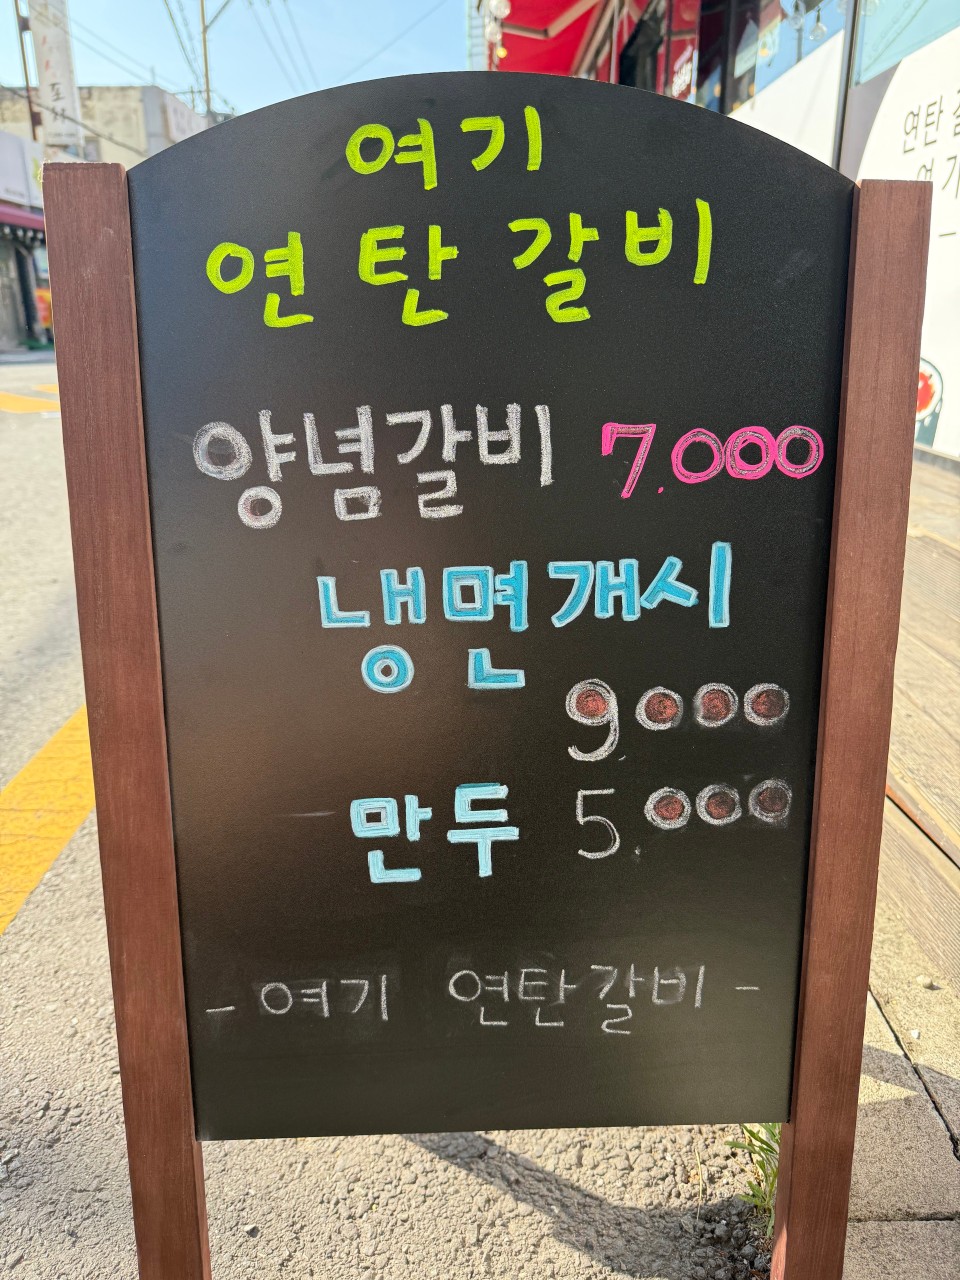 여기
연탄갈비
양념갈비 7.000
냉면개시
9000
만두 5.000
- 여기 연탄갈비 -
연탄
여기